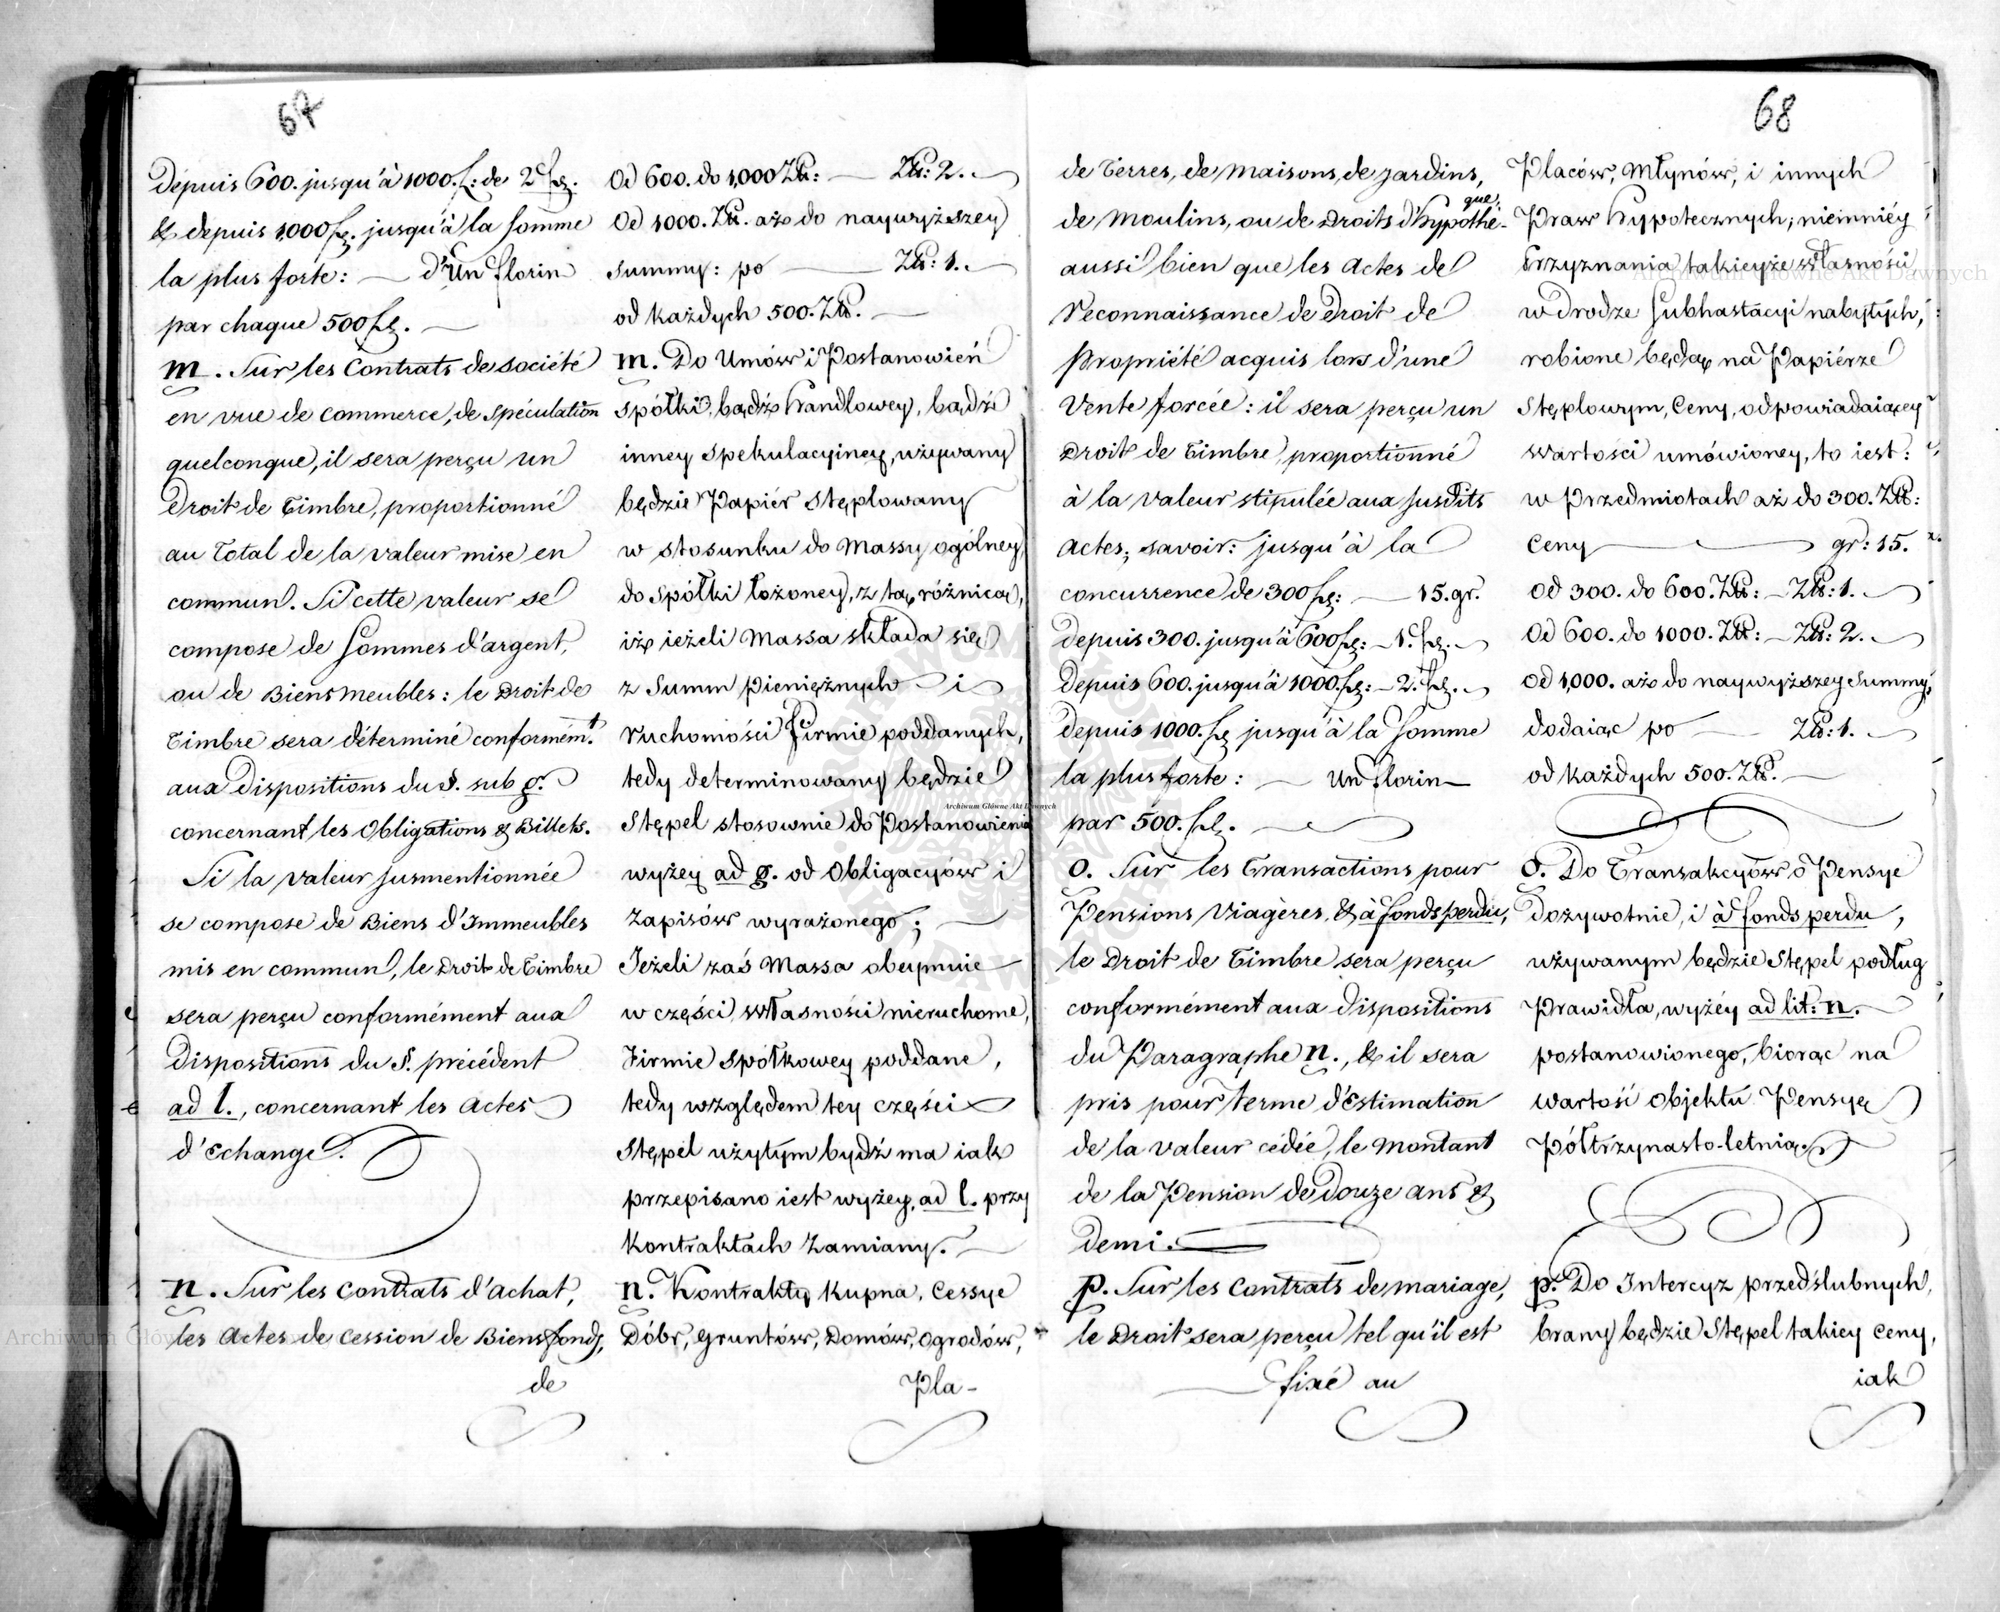 67
depuis 600. jusqu'à 1000. fl: de 2 fl.
& depuis 1,000 fl. jusqu'à la Somme
la plus forte: — d'Un florin
par chaque 500 fl. —
m. Sur les Contrats de société
en vue de commerce, de spéculation
quelconque, il sera perçu un
Droit de Timbre, proportionné
au Total de la valeur mise en
commun. Si cette valeur se
compose de Sommes d'argent,
ou de Biens meubles: le Droit de
Timbre sera déterminé conformémt.
aux Dispositions du §. sub g.
concernant les Obligations & Billets.
Si la valeur susmentionnée
se compose de Biens d'Immeubles
mis en commun, le Droit de Timbre
sera perçu conformément aux
Dispositions du §. précédent
ad l., concernant les Actes
d'Echange.
n. Sur les Contrats d'achat,
les Actes de Cession de Biensfonds,
de
Od 600. do 1,000 Złł: — Złł: 2. —
Od 1000. Złł. aż do naywyższey
Summy: po — Złł: 1. —
od każdych 500. Złł. —
m. Do Umów i Postanowień
Spółki, bądź Handlowey, bądź
inney Spekulacyiney, używany
będzie Papiér Stęplowany
w stosunku do Massy ogólney
do Spółki łożoney, z tą różnicą,
iż ieżeli Massa składa się
z Summ pieniężnych i
ruchomości firmie poddanych,
tedy determinowany będzie
Stępel stosownie do Postanowienia
wyżey ad g. od Obligacyów i
Zapisów wyrażonego; —
Jeżeli zaś Massa obeymuie
w części własności nieruchome,
Firmie Spółkowey poddane,
tedy względem tey części
Stępel użytym bydź ma iak
przepisano iest wyżey, ad l. przy
Kontraktach Zamiany. —
n. Kontrakty Kupna, Cessye
Dóbr, Gruntów, Domów, Ogrodów,
Pla-
68
de Terres, de Maisons, de Jardins,
de Moulins, ou de Droits d'hypothé-que;
aussi bien que les Actes de
Reconnaissance de Droit de
Propriété acquis lors d'une
Vente forcée: il sera perçu un
Droit de Timbre, proportionné
à la valeur stipulée aux susdits
Actes; savoir: jusqu'à la
concurrence de 300 fl: — 15. gr.
depuis 300. jusqu'à 600 fl: — 1. fl. —
depuis 600. jusqu'à 1000. fl: — 2. fl. —
depuis 1000. fl jusqu'à la Somme
la plus forte: — Un florin —
par 500. fl. —
o. Sur les Transactions pour
Pensions Viagères, & à fonds perdu,
le Droit de Timbre sera perçu
conformément aux Dispositions
du Paragraphe n., & il sera
pris pour terme d'Estimation
de la valeur cédée, le Montant
de la Pension de douze ans &
demi. —
p. Sur les Contrats de mariage,
le Droit sera perçu tel qu'il est
fixé au
Placów, Młynów, i innych
Praw hypotecznych; niemniéy
Przyznania takieyże własności
w drodze Subhastacyi nabytych,
robione będą na Papiérze
Stęplowym, Ceny, odpowiadaiącey
Wartości umówioney, to iest:
w Przedmiotach aż do 300. Złł:
Ceny — gr: 15.
Od 300. do 600. Złł: — Złł: 1. —
Od 600. do 1000. Złł: — Złł: 2. —
Od 1,000. aż do naywyższey Summy,
dodaiąc po — Złł: 1. —
od każdych 500. Złł. —
o. Do Transakcyów o Pensye
dożywotnie, i à fonds perdu,
używanym będzie Stępel podług
Prawidła, wyżéy ad lit: n. —
postanowionego, biorąc na
wartość Objektu Pensyę
Półtrzynasto-letnią.
p. Do Intercyz przedślubnych,
brany będzie Stępel takiey Ceny,
iak
Archiwum Główne Akt Dawnych